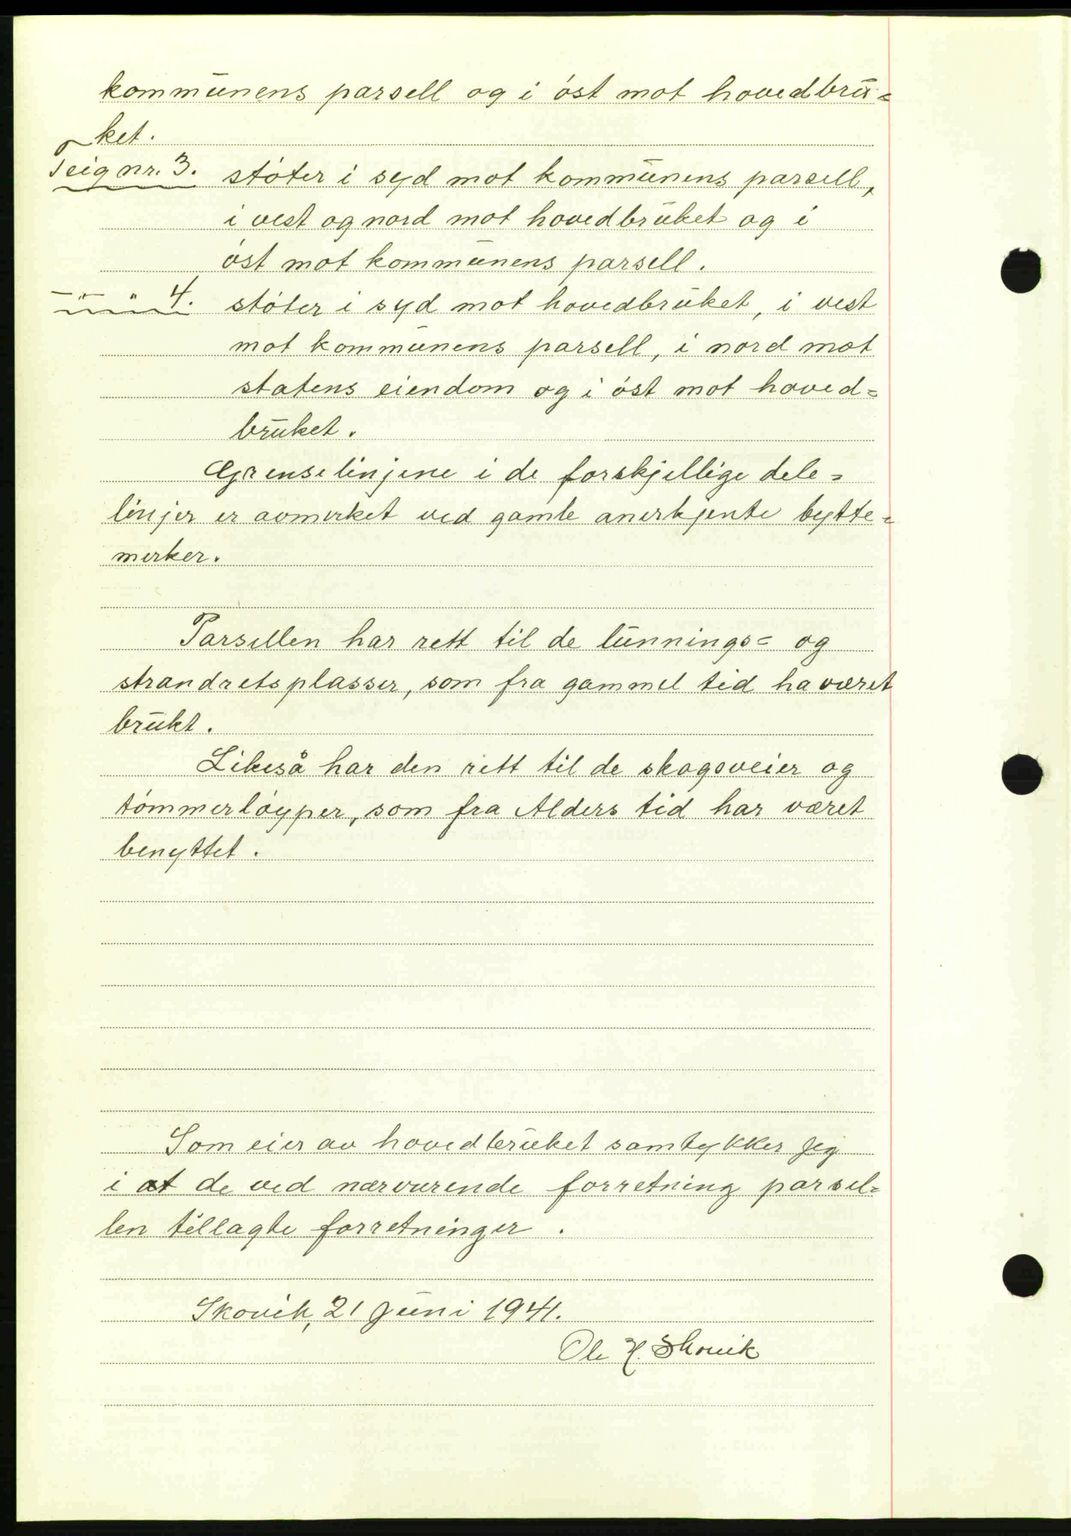 kommunens parsell og i øst mot hovedbru=
ket.
Teig nr. 3. støter i syd mot kommunens parsell,
i vest og nord mot hovedbruket og i
øst mot kommunens parsell.
—"— " 4. støter i syd mot hovedbruket, i vest
mot kommunens parsell, i nord mot
statens eiendom og i øst mot hoved=
bruket.
Grenselinjene i de forskjellige dele=
linjer er avmerket ved gamle anerkjente bytte=
merker.
Parsellen har rett til de lunnings= og
strandretsplasser, som fra gammel tid ha været
brukt.
Likeså har den rett til de skogsveier og
tømmerløyper, som fra Alders tid har været
benyttet.
Som eier av hovedbruket samtykker jeg
i at de ved nærværende forretning parsel=
len tillagte forretninger.
Skovik, 21 Juni 1941.
Ole H. Skovik